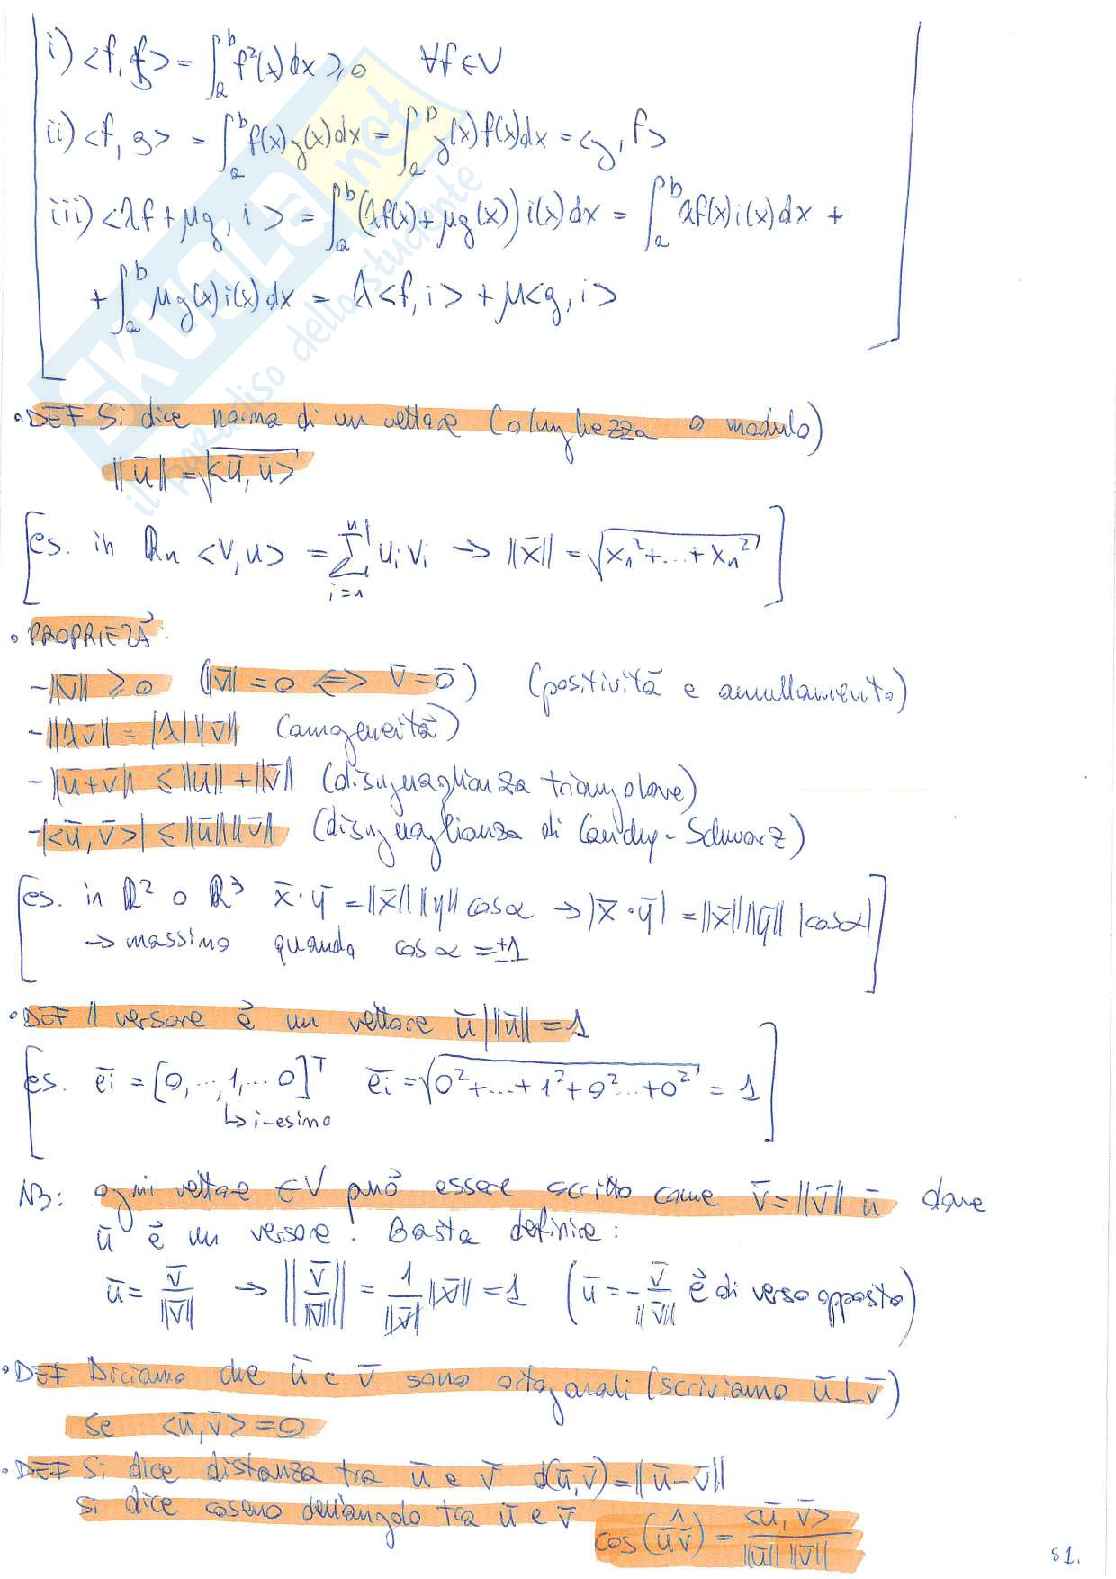 i) <f, f> = ∫_a^b f²(x)dx ⩾ 0 ∀f∈V
ii) <f, g> = ∫_a^b f(x)g(x)dx = ∫_a^b g(x)f(x)dx = <g, f>
iii) <λf + μg, i> = ∫_a^b (λf(x) + μg(x)) i(x)dx = ∫_a^b λf(x)i(x)dx +
+ ∫_a^b μg(x)i(x)dx = λ<f, i> + μ<g, i>
SKUOLA.net
il paradiso dello studente
• DEF Si dice norma di un vettore (o lunghezza o modulo)
||ū|| = √<ū, ū>
[es. in ℝn <v,u> = Σ_{i=1}^n u_i v_i → ||x̄|| = √(x₁² + ... + x_n²)]
• PROPRIETÀ:
- ||v̄|| ⩾ 0 (||v̄|| = 0 ⟺ v̄ = 0̄) (positività e annullamento)
- ||λv̄|| = |λ| ||v̄|| (omogeneità)
- ||ū+v̄|| ≤ ||ū|| + ||v̄|| (disuguaglianza triangolare)
- |<ū, v̄>| ≤ ||ū|| ||v̄|| (disuguaglianza di Cauchy-Schwarz)
[es. in ℝ² o ℝ³ x̄·ȳ = ||x̄|| ||y|| cosα → |x̄·ȳ| = ||x̄|| ||ȳ|| |cosα|
→ massimo quando cosα = ±1]
• DEF Il versore è un vettore ū | ||ū|| = 1
[es. ēi = [0,...,1,...0]ᵀ ēi = √(0² + ... + 1² + 0² ... + 0²) = 1]
↳ i-esimo
NB: ogni vettore ∈V può essere scritto come v̄ = ||v̄|| ū dove
ū è un versore. Basta definire:
ū = v̄/||v̄|| → ||v̄/||v̄|| || = 1/||v̄|| ||v̄|| = 1 (ū = - v̄/||v̄|| è di verso opposto)
• DEF Diciamo che ū e v̄ sono ortogonali (scriviamo ū⊥v̄)
se <ū, v̄> = 0
• DEF Si dice distanza tra ū e v̄ d(ū, v̄) = ||ū - v̄||
si dice coseno dell'angolo tra ū e v̄ cos(ū^v̄) = <ū, v̄>/(||ū|| ||v̄||)
51.